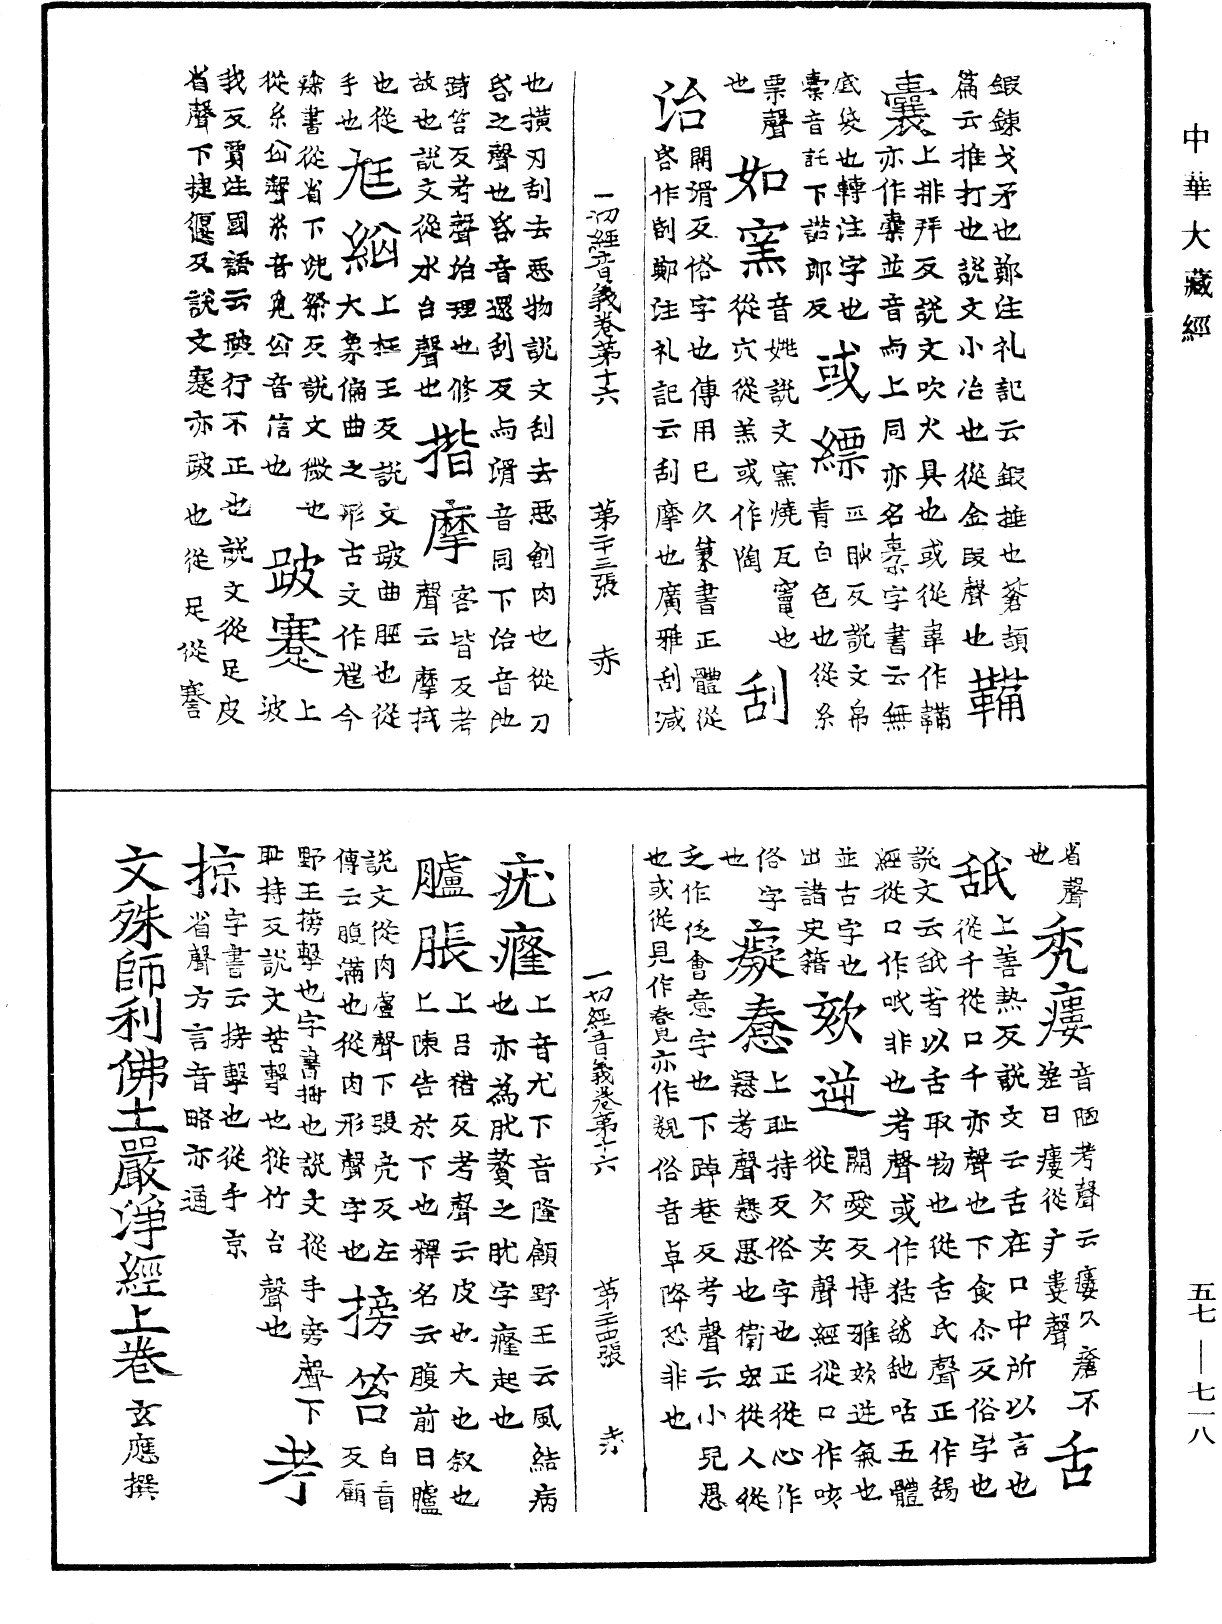 中華大藏經
鍜鍊戈矛也鄭注礼記云鍜捶也蒼頡
篇云推打也說文小冶也從金段聲也 鞴
囊 上排拜反說文吹火具也或從韋作鞴
亦作橐並音与上同亦名橐字書云無
底袋也轉注字也 或縹 匹眇反說文帛
橐音託下諾郎反 青白色也從糸
票聲
也 如窯 音姚說文窯燒瓦竈也
從穴從羔或作陶 刮
治 開滑反俗字也傳用已久篆書正體從
𠯑作刮鄭注礼記云刮摩也廣雅刮減
一切經音義卷第十六 第二十三張 赤
也橫刃刮去惡物說文刮去惡創肉也從刀
𠯑之聲也𠯑音還刮反与滑音同下治音
持笞反考聲治理也修
故也說文從水台聲也 揩摩 客皆反考
聲云摩拭
也從
手也 尪縐 上枉王反說文跛曲脛也從
大象偏曲之形古文作尪今
隸書從省下 祭反說文微也
從糸 聲糸音覓 音信也 跛蹇 上波
我反賈注國語云跛行不正也說文從足皮
省聲下揵偃反說文蹇亦跛也從足從謇
省聲
也 禿瘻 音陋考聲云瘻久瘡不
差曰瘻從疒婁聲 舌
舐 上善熱反說文云舌在口中所以言也
從千從口千亦聲也下食尒反俗字也
說文云舐者以舌取物也從舌氏聲正作舓
經從口作呧非也考聲或作狧 咶五體
並古字也
出諸史籍 欬逆 開愛反博雅欬逆氣也
從欠亥聲經從口作咳
俗字
也 癡憃 上耻持反俗字也正從心作
懝考聲懝愚也衛宏從人從
乏作伩會意字也下踔巷反考聲云小兒愚
也或從見作 亦作覩俗音卓降恐非也
一切經音義卷第十六 第二十四張 赤
疣癃 上音尤下音隆顧野王云風結病
也亦為肬贅之肬字癃起也
臚脹 上呂猪反考聲云皮也大也叙也
上陳告於下也釋名云腹前曰臚
說文從肉盧聲下張亮反左
傳云腹滿也從肉形聲字也 搒笞 白盲
反顧
野王搒擊也字書捶也說文從手旁聲下
耻持反說文笞擊也從竹台聲也 考
掠 字書云拷擊也從手京
省聲方言音略亦通
文殊師利佛土嚴淨經上卷 玄應撰
五七—七一八